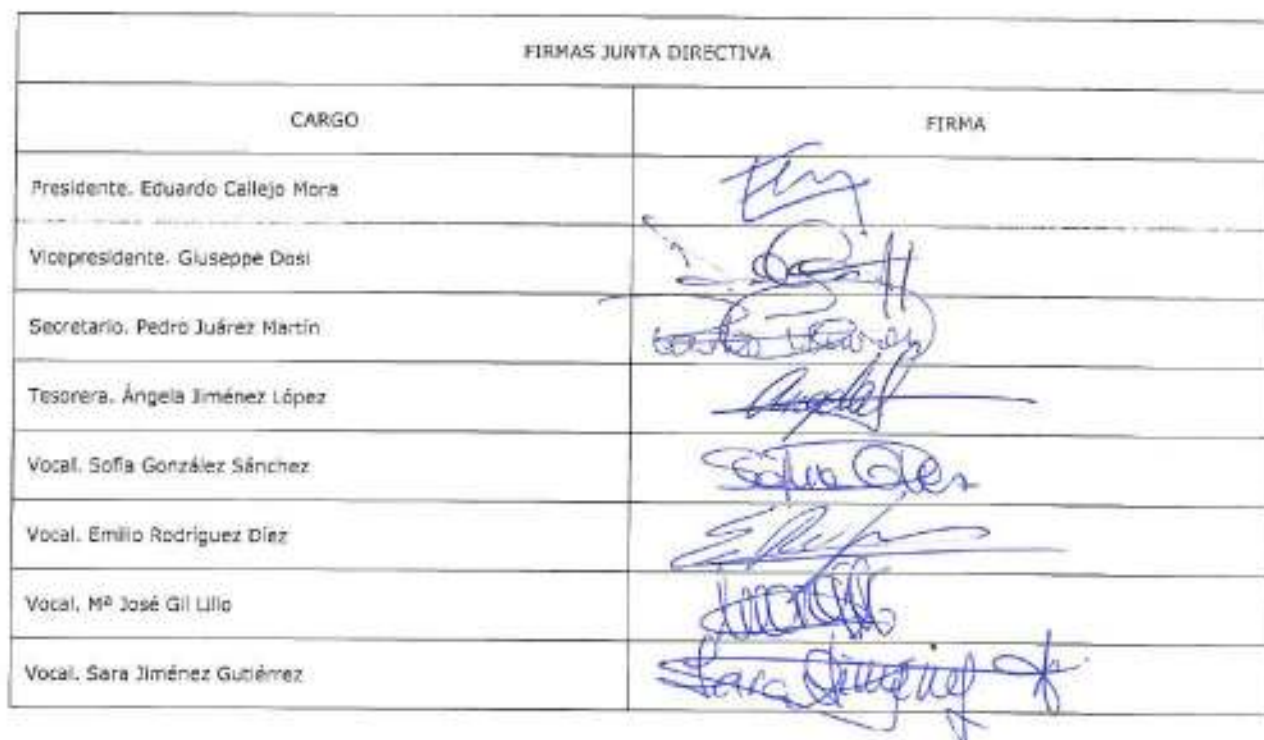 FIRMAS JUNTA DIRECTIVA
CARGO FIRMA
Presidente. Eduardo Callejo Mora
Vicepresidente. Giuseppe Dosi
Secretario. Pedro Juárez Martín
Tesorera. Ángela Jiménez López
Angela
Vocal. Sofía González Sánchez
Sofía
Vocal. Emilio Rodríguez Díez
Vocal. Mª José Gil Lillo
Vocal. Sara Jiménez Gutiérrez
Sara Jiménez